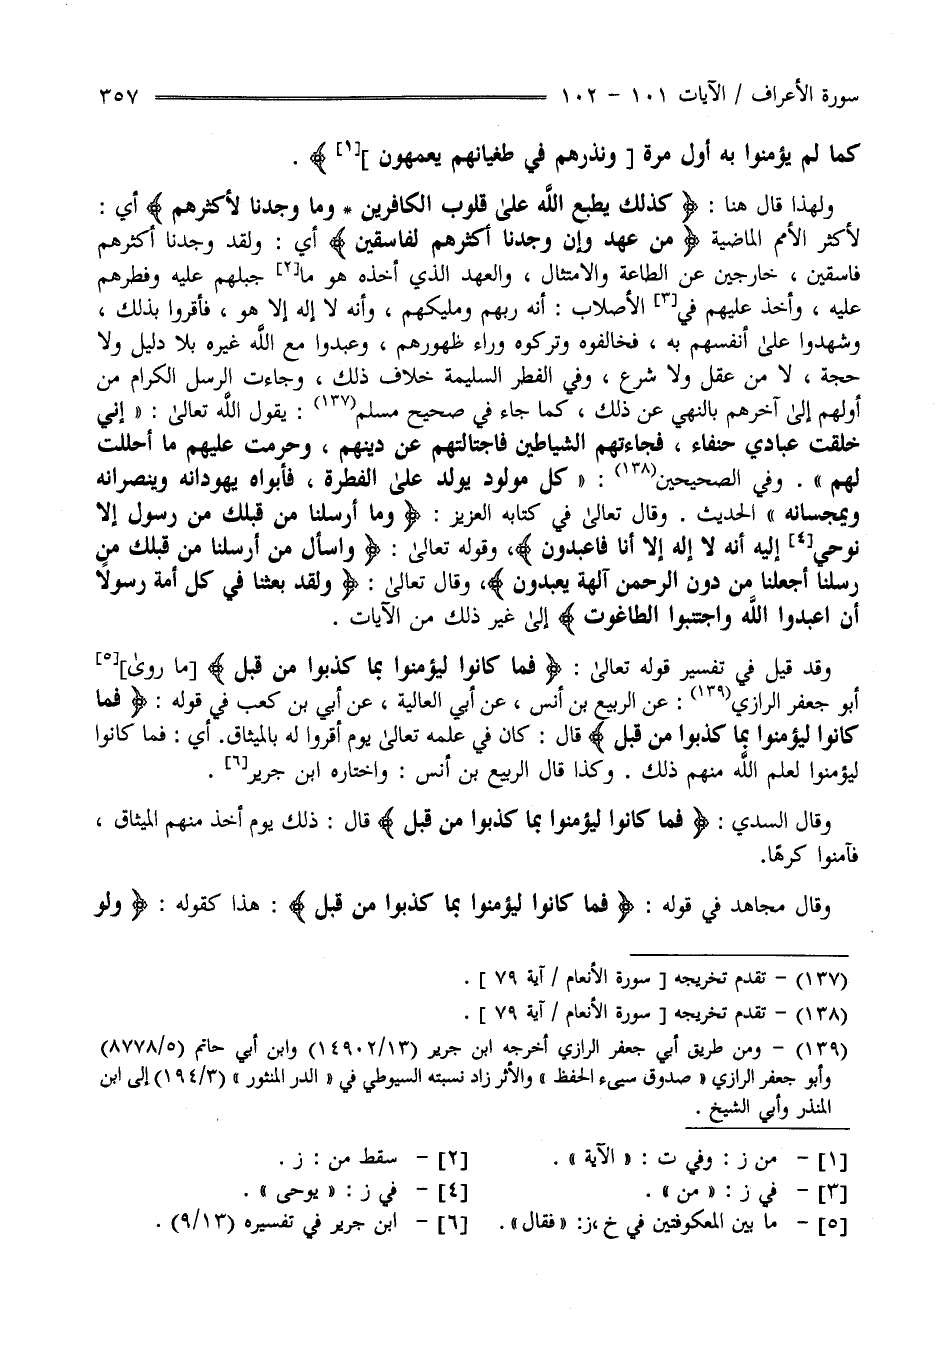 سورة الأعراف / الآيات ١٠١ - ١٠٢ ٣٥٧
كما لم يؤمنوا به أول مرة [ ونذرهم في طغيانهم يعمهون ][١] ﴾ .
ولهذا قال هنا : ﴿ كذلك يطبع الله على قلوب الكافرين * وما وجدنا لأكثرهم ﴾ أي :
لأكثر الأمم الماضية ﴿ من عهد وإن وجدنا أكثرهم لفاسقين ﴾ أي : ولقد وجدنا أكثرهم
فاسقين ، خارجين عن الطاعة والامتثال ، والعهد الذي أخذه هو ما[٢] جبلهم عليه وفطرهم
عليه ، وأخذ عليهم في[٣] الأصلاب : أنه ربهم ومليكهم ، وأنه لا إله إلا هو ، فأقروا بذلك ،
وشهدوا على أنفسهم به ، فخالفوه وتركوه وراء ظهورهم ، وعبدوا مع الله غيره بلا دليل ولا
حجة ، لا من عقل ولا شرع ، وفي الفطر السليمة خلاف ذلك ، وجاءت الرسل الكرام من
أولهم إلى آخرهم بالنهي عن ذلك ، كما جاء في صحيح مسلم(١٣٧) : يقول الله تعالى : « إني
خلقت عبادي حنفاء ، فجاءتهم الشياطين فاجتالتهم عن دينهم ، وحرمت عليهم ما أحللت
لهم » . وفي الصحيحين(١٣٨) : « كل مولود يولد على الفطرة ، فأبواه يهودانه وينصرانه
ويمجسانه » الحديث . وقال تعالى في كتابه العزيز : ﴿ وما أرسلنا من قبلك من رسول إلا
نوحي[٤] إليه أنه لا إله إلا أنا فاعبدون ﴾، وقوله تعالى : ﴿ واسأل من أرسلنا من قبلك من
رسلنا أجعلنا من دون الرحمن آلهة يعبدون ﴾، وقال تعالى : ﴿ ولقد بعثنا في كل أمة رسولًا
أن اعبدوا الله واجتنبوا الطاغوت ﴾ إلى غير ذلك من الآيات .
وقد قيل في تفسير قوله تعالى : ﴿ فما كانوا ليؤمنوا بما كذبوا من قبل ﴾ [ما روى][٥]
أبو جعفر الرازي(١٣٩) : عن الربيع بن أنس ، عن أبي العالية ، عن أبي بن كعب في قوله : ﴿ فما
كانوا ليؤمنوا بما كذبوا من قبل ﴾ قال : كان في علمه تعالى يوم أقروا له بالميثاق. أي : فما كانوا
ليؤمنوا لعلم الله منهم ذلك . وكذا قال الربيع بن أنس : واختاره ابن جرير[٦] .
وقال السدي : ﴿ فما كانوا ليؤمنوا بما كذبوا من قبل ﴾ قال : ذلك يوم أخذ منهم الميثاق ،
فآمنوا كرهًا.
وقال مجاهد في قوله : ﴿ فما كانوا ليؤمنوا بما كذبوا من قبل ﴾ : هذا كقوله : ﴿ ولو
(١٣٧) - تقدم تخريجه [ سورة الأنعام / آية ٧٩ ] .
(١٣٨) - تقدم تخريجه [ سورة الأنعام / آية ٧٩ ] .
(١٣٩) - ومن طريق أبي جعفر الرازي أخرجه ابن جرير (١٤٩٠٢/١٣) وابن أبي حاتم (٨٧٧٨/٥)
وأبو جعفر الرازي « صدوق سيىء الحفظ » والأثر زاد نسبته السيوطي في « الدر المنثور » (١٩٤/٣) إلى ابن
المنذر وأبي الشيخ .
[١] - من ز : وفي ت : « الآية » . [٢] - سقط من : ز .
[٣] - في ز : « من » . [٤] - في ز : « يوحى » .
[٥] - ما بين المعكوفتين في خ ،ز: «فقال». [٦] - ابن جرير في تفسيره (٩/١٣) .